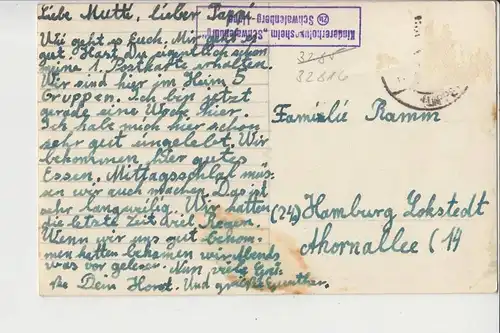 Liebe Mutti, lieber Pappi
Wie geht es Euch. Mir geht es
gut. Hast du eigentlich schon
meine 1. Postkarte erhalten.
Wir sind hier im Heim 5
Gruppen. Ich bin jetzt
gerade eine Woche hier.
Ich habe mich hier schon
sehr gut eingelebt. Wir
bekommen hier gutes
Essen. Mittagsschlaf müs-
sen wir auch machen. Das ist
sehr langweilig. Wir hatten
die letzte Zeit viel Regen.
Wenn wir uns gut benom-
men hatten bekamen wir abends
was vor gelesen. Nun viele Grü-
ße Dein Horst. Und grüße Gunther.
Kindererholungsheim „Schwalenburg"
Schwalenberg
32816
Familie Ramm
(24) Hamburg Lokstedt
Ahornallee (14